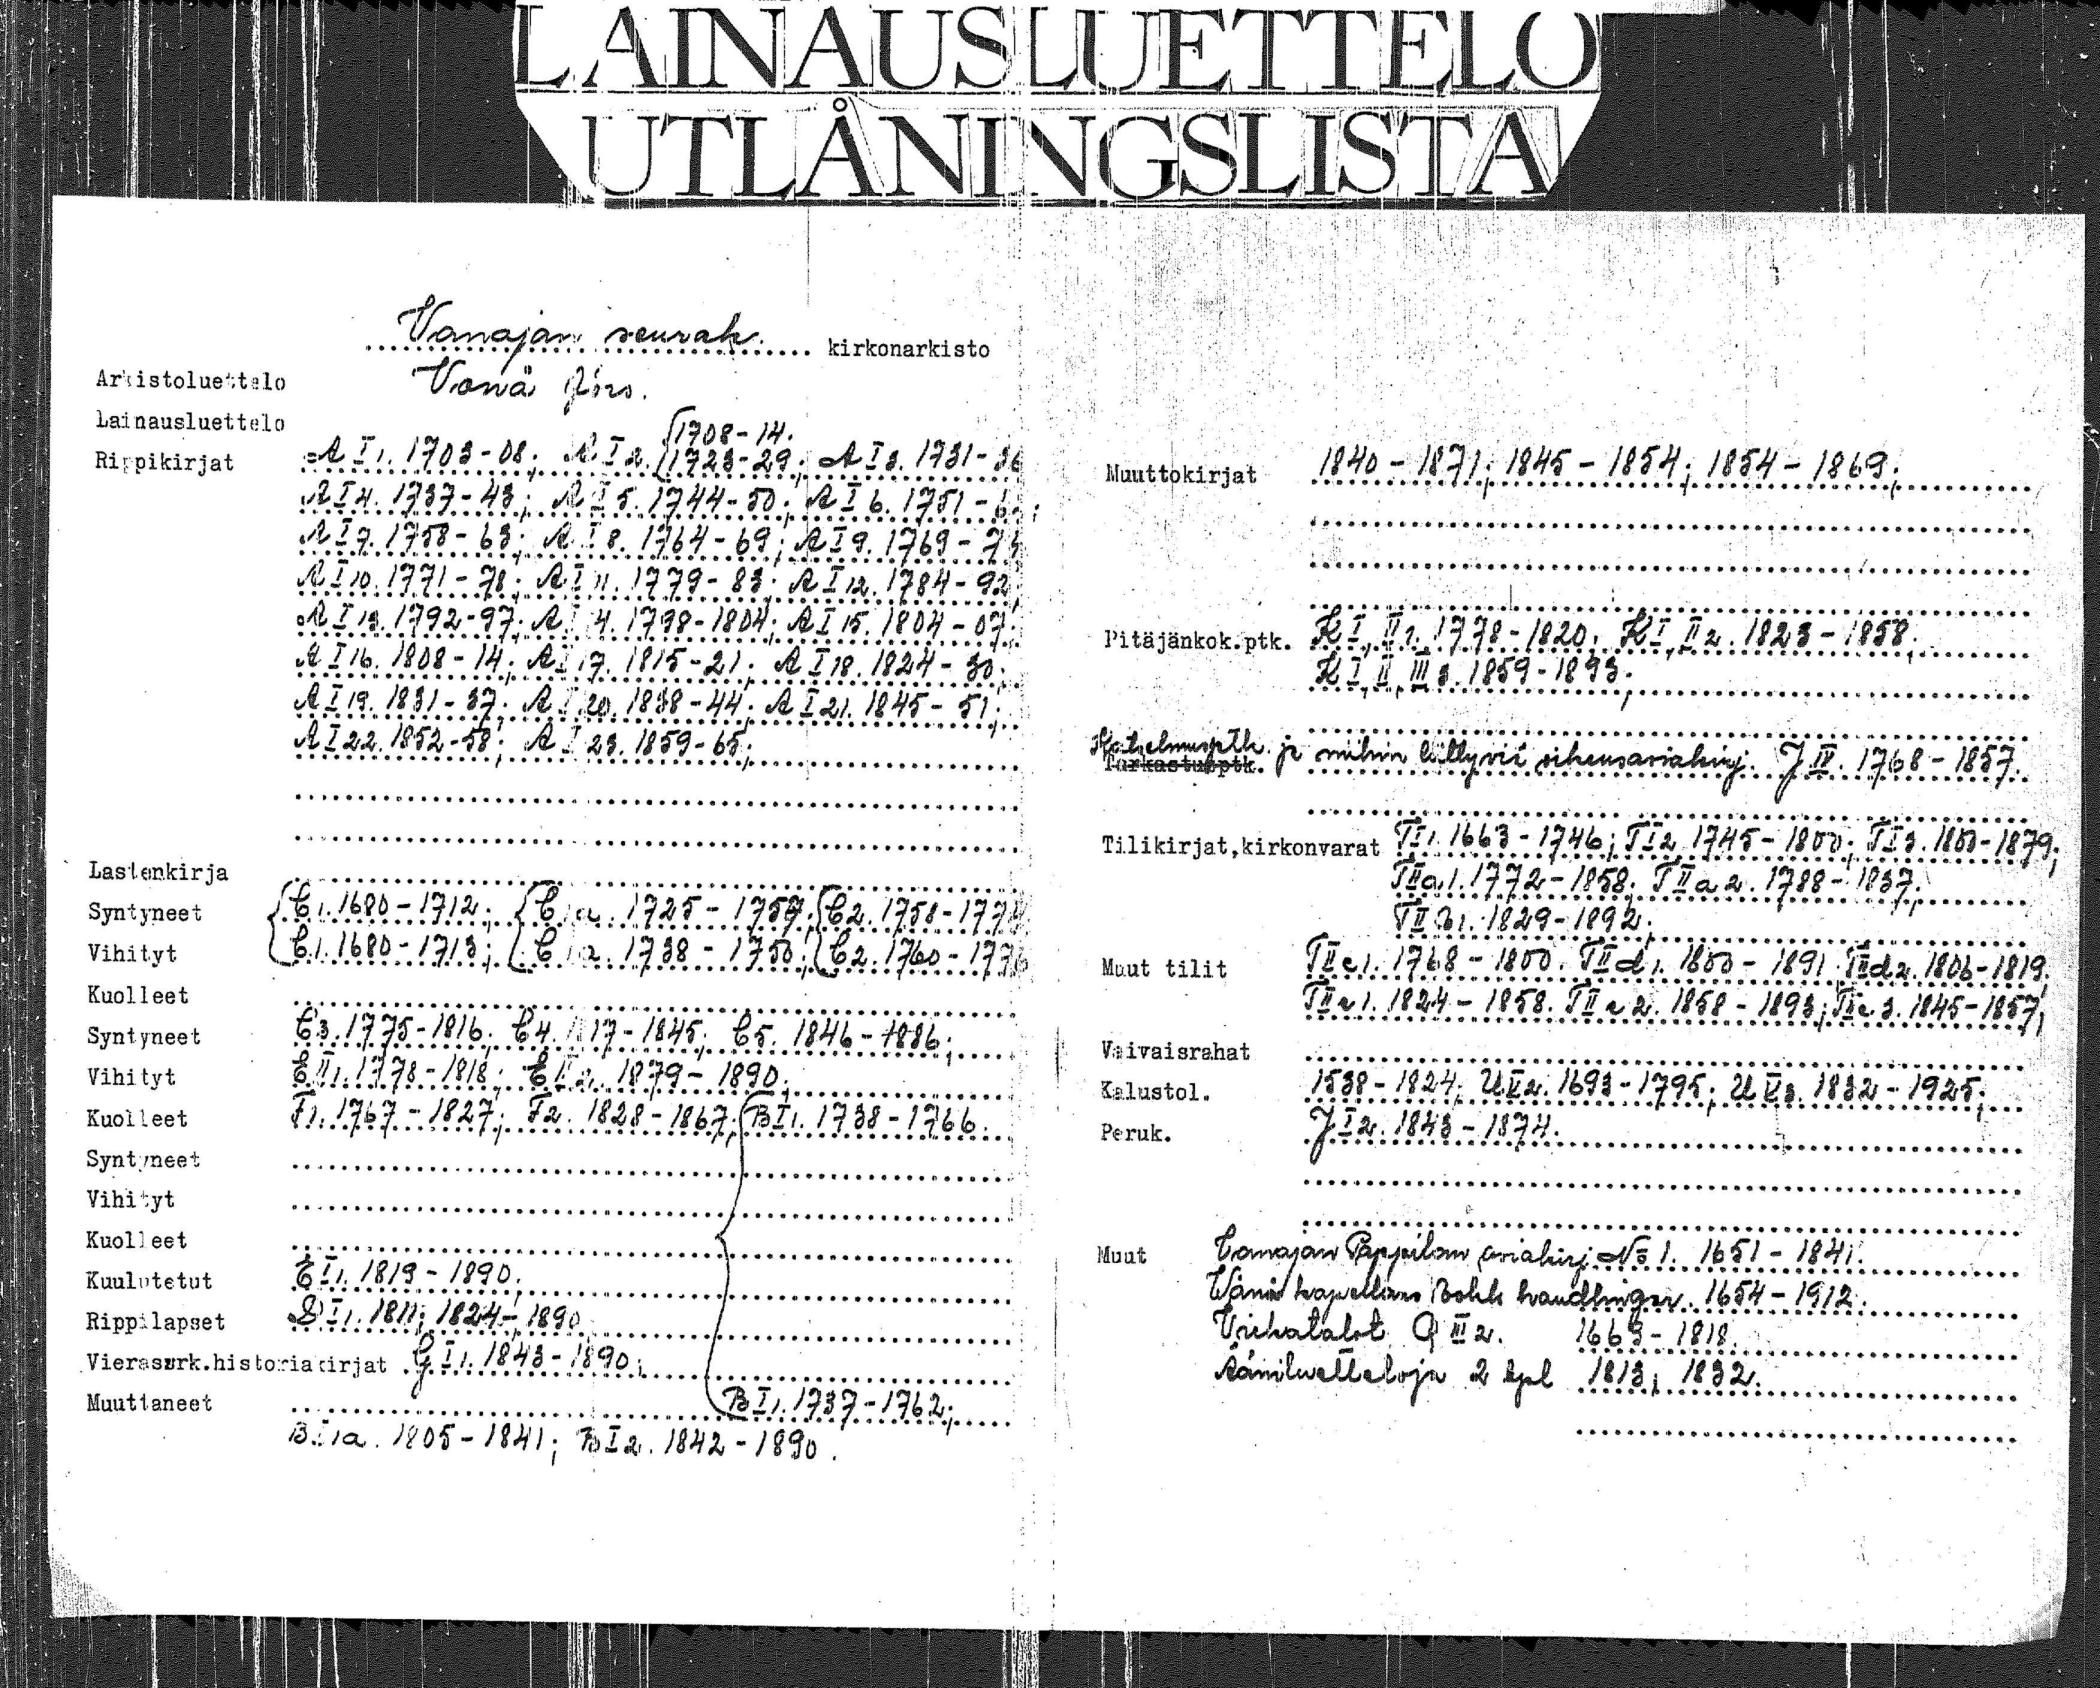 LAINAUSLUETTELO
UTLÅNINGSLISTA
Vanajan seurak. kirkonarkisto
Arkistoluettelo Vanå förs.
Lainausluettelo
Rippikirjat A I 1. 1703-08; A I 2. {1708-14. 1723-29; A I 3. 1731-36
A I 4. 1737-43; A I 5. 1744-50; A I 6. 1751-
A I 7. 1758-63; A I 8. 1764-69; A I 9. 1769-
A I 10. 1771-78; A I 11. 1779-83; A I 12. 1784-92
A I 13. 1792-97; A I 4. 1798-1804; A I 15. 1804-07;
A I 16. 1808-14; A I 17. 1815-21; A I 18. 1824-30;
A I 19. 1831-37; A I 20. 1838-44; A I 21. 1845-51;
A I 22. 1852-58; A I 23. 1859-65;
Lastenkirja
Syntyneet {C1. 1680-1712; {C1a. 1725-1757; {C2. 1758-1774
Vihityt {C1. 1680-1713; {C1a. 1738-1750; {C2. 1760-1776
Kuolleet
Syntyneet C3. 1775-1816; C4. 1817-1845; C5. 1846-1886;
Vihityt E II 1. 1778-1818; E II 2. 1879-1890;
Kuolleet F1. 1767-1827; F2. 1828-1867; {B I 1. 1738-1766.
Syntyneet
Vihityt
Kuolleet
Kuulutetut E I 1. 1819-1890.
Rippilapset D I 1. 1811; 1824-1890
Vierassrk.historiakirjat G I 1. 1843-1890;
Muuttaneet B I 1. 1737-1762;
B I 1a. 1805-1841; B I 2. 1842-1890.
Muuttokirjat 1840-1871; 1845-1854; 1854-1869;
Pitäjänkok.ptk. K I, II 1. 1778-1820; K I, II 2. 1823-1858;
K I, II, III 3. 1859-1893;
Katselmusptk.
Tarkastusptk. ja niihin liittyviä oikeusasiakirj. J IV. 1768-1857.
Tilikirjat,kirkonvarat T I 1. 1663-1746; T I 2. 1745-1800; T I 3. 1800-1879;
T II a 1. 1772-1858; T II a 2. 1788-1837;
T II b 1. 1829-1892;
Muut tilit T II c 1. 1768-1800. T II d 1. 1800-1891 T II d 2. 1806-1819.
T II e 1. 1824-1858. T II e 2. 1858-1893; T II e 3. 1845-1857;
Vaivaisrahat
Kalustol. 1538-1824; U V 2. 1693-1795; U V 3. 1832-1925;
Peruk. J I 2. 1843-1874.
Muut Vanajan Pappilan asiakirj. No 1. 1651-1841.
Wånå kapellans bohls handlingar. 1654-1912.
Virkatalot Q III 2. 1663-1818.
Ääniluetteloja 2 kpl 1813; 1832.